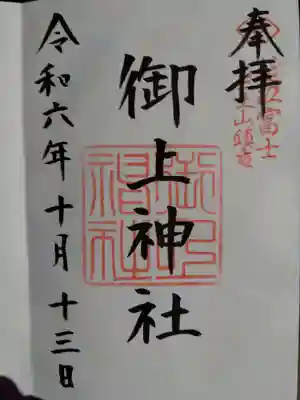 奉拝
近江富士
三上山頭道
御上神社
御上神社
令和六年十月十三日